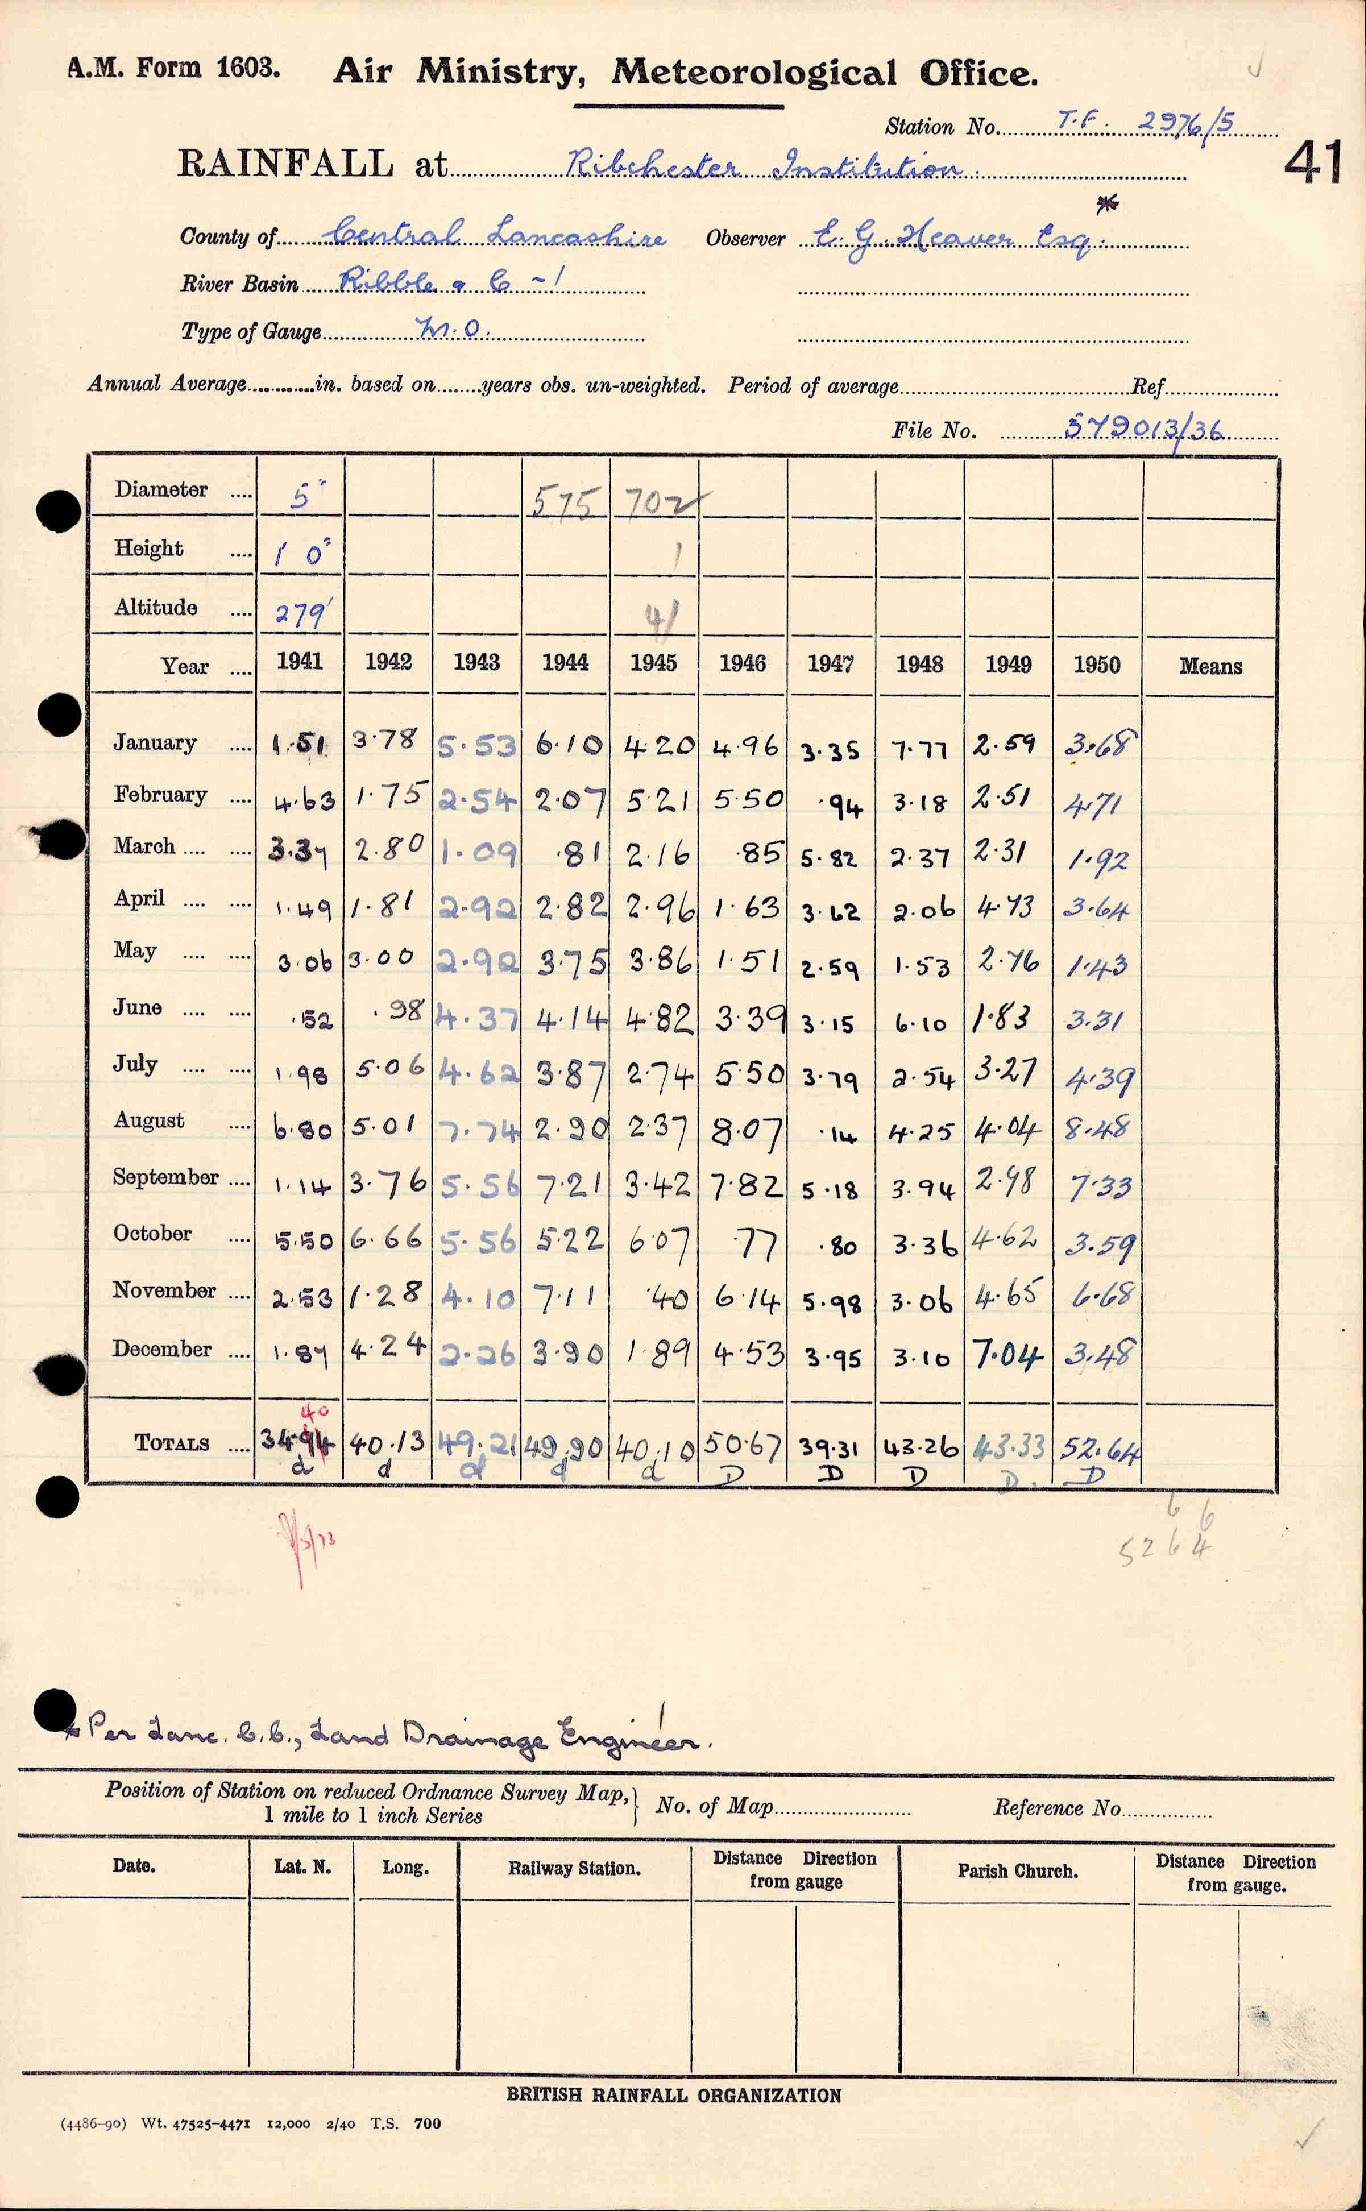 A.M. Form 1603. Air Ministry, Meteorological Office.
Station No. T.F. 2976/5
41
RAINFALL at Ribchester Institution.
County of Central Lancashire Observer E. G. Heaver Esq. *
River Basin Ribble & C -1
Type of Gauge M.O.
Annual Average in. based on years obs. un-weighted. Period of average Ref.
File No. 579013/36
Diameter 5" 575 702
Height 1' 0" 1
Altitude 279' 41
Year 1941 1942 1943 1944 1945 1946 1947 1948 1949 1950 Means
January 1.51 3.78 5.53 6.10 4.20 4.96 3.35 7.77 2.59 3.68
February 4.63 1.75 2.54 2.07 5.21 5.50 .94 3.18 2.51 4.71
March 3.37 2.80 1.09 .81 2.16 .85 5.82 2.37 2.31 1.92
April 1.49 1.81 2.92 2.82 2.96 1.63 3.62 2.06 4.73 3.64
May 3.06 3.00 2.92 3.75 3.86 1.51 2.59 1.53 2.76 1.43
June .52 .98 4.37 4.14 4.82 3.39 3.15 6.10 1.83 3.31
July 1.98 5.06 4.62 3.87 2.74 5.50 3.79 2.54 3.27 4.39
August 6.80 5.01 7.74 2.90 2.37 8.07 .14 4.25 4.04 8.48
September 1.14 3.76 5.56 7.21 3.42 7.82 5.18 3.94 2.98 7.33
October 5.50 6.66 5.56 5.22 6.07 .77 .80 3.36 4.62 3.59
November 2.53 1.28 4.10 7.11 .40 6.14 5.98 3.06 4.65 6.68
December 1.87 4.24 2.26 3.90 1.89 4.53 3.95 3.10 7.04 3.48
40
TOTALS 34.94 40.13 49.21 49.90 40.10 50.67 39.31 43.26 43.33 52.64
d d d d d D D D D. D
6 6
5264
* Per Lanc. C.C., Land Drainage Engineer.
Position of Station on reduced Ordnance Survey Map,
1 mile to 1 inch Series
No. of Map Reference No.
Date. Lat. N. Long. Railway Station. Distance Direction from gauge Parish Church. Distance Direction from gauge.
BRITISH RAINFALL ORGANIZATION
(4486-90) Wt. 47525-4471 12,000 2/40 T.S. 700